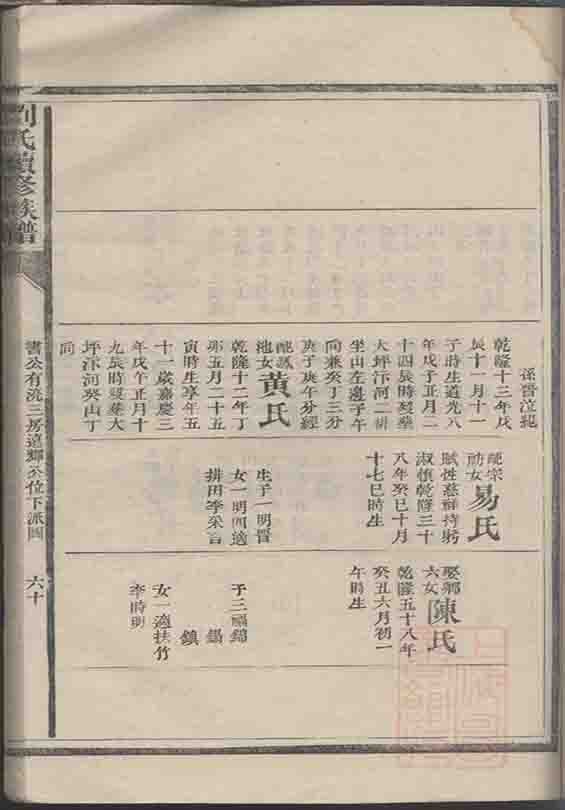 孫晉泣冕
乾隆十三年戊
辰十一月十一
子時生道光八
年戊子正月二
十四辰時歿葬
大坪汴河二耕
坐山左邊子午
向兼癸丁三分
庚子庚午分經
配鳳
池女黃氏
乾隆十二年丁
卯五月二十五
寅時生享年五
十一歲嘉慶三
年戊午正月十
九辰時歿葬大
坪汴河癸山丁
向
配宗
舫女易氏
賦性慈祥持躬
淑慎乾隆三十
八年癸巳十月
十七巳時生
生子一明晋
女一明四適
排田李采言
娶鄉
六女陳氏
乾隆五十八年
癸丑六月初一
午時生
子三福錦
錫
鎮
女一適扶竹
李時明
劉氏續修族譜
書公有流三房遠鄉公位下派圖
六十